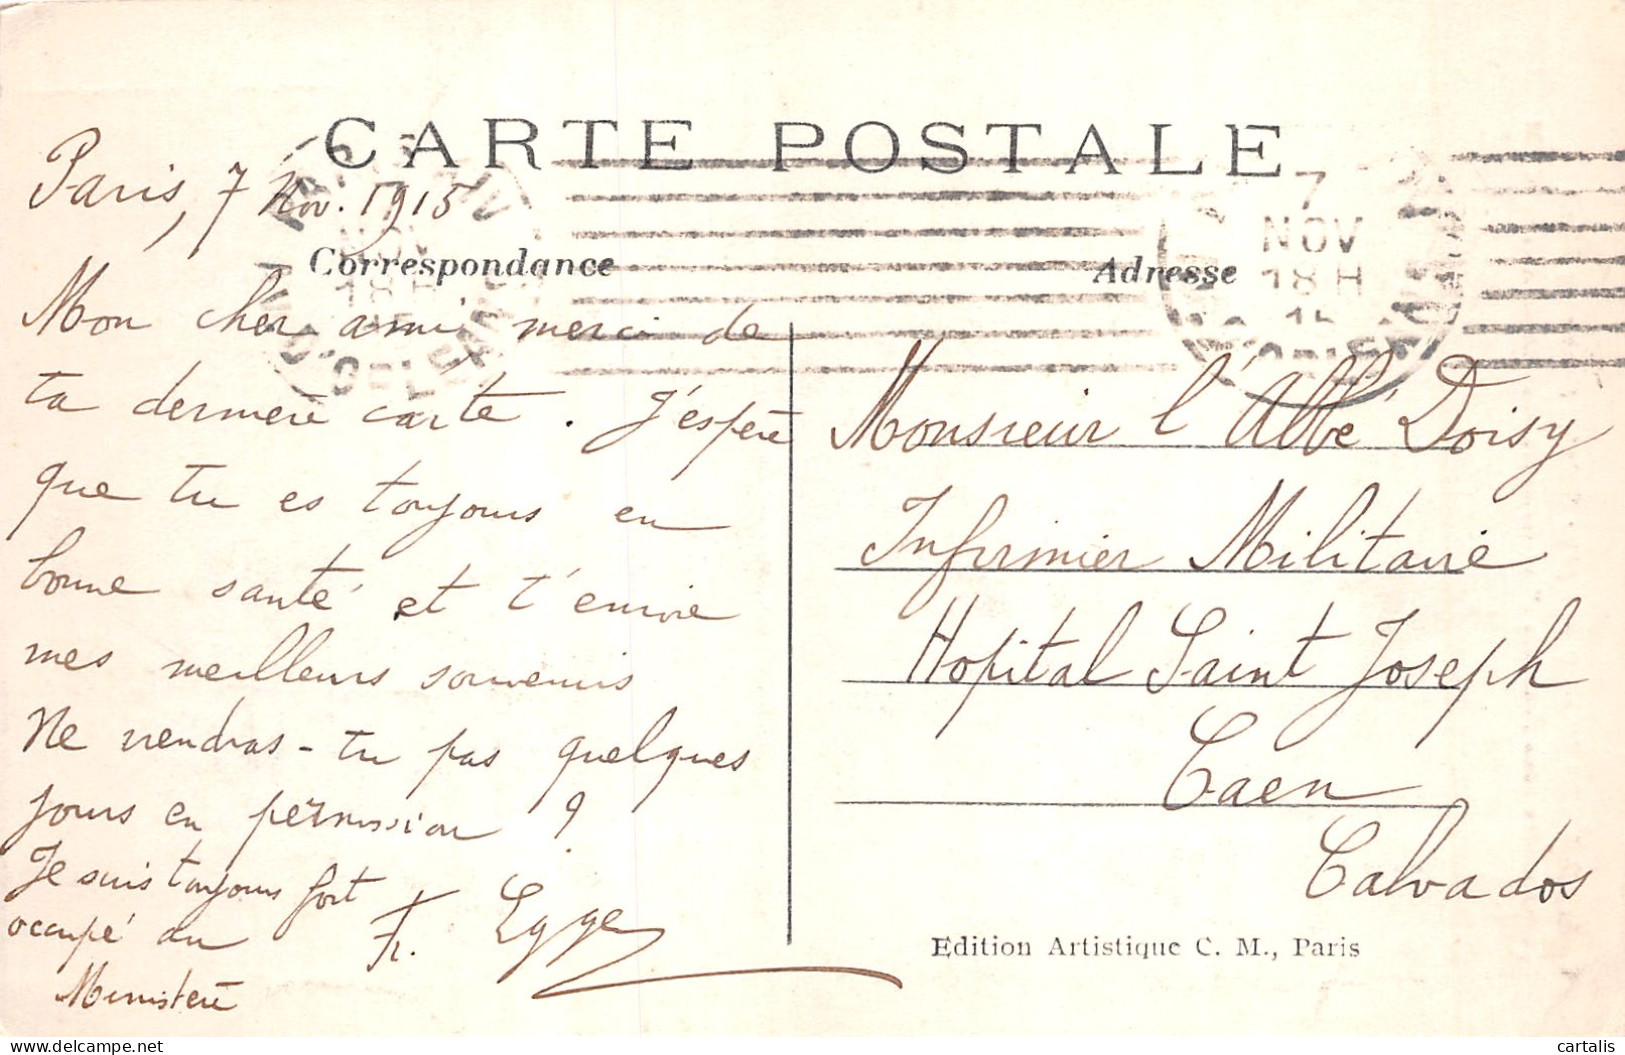 CARTE POSTALE
Paris, 7 Nov. 1915
Correspondance
Mon cher ami merci de
ta dernière carte. J'espère
que tu es toujours en
bonne santé et t'envoie
mes meilleurs souvenirs
Ne viendras-tu pas quelques
jours en permission ?
Je suis toujours fort
occupé au
Ministère
Fr. Egger
7
NOV
18 H
15
Adresse
Monsieur l'Abbé Doisy
Infirmier Militaire
Hopital Saint Joseph
Caen
Calvados
Edition Artistique C. M., Paris
delcampe.net
cartalis